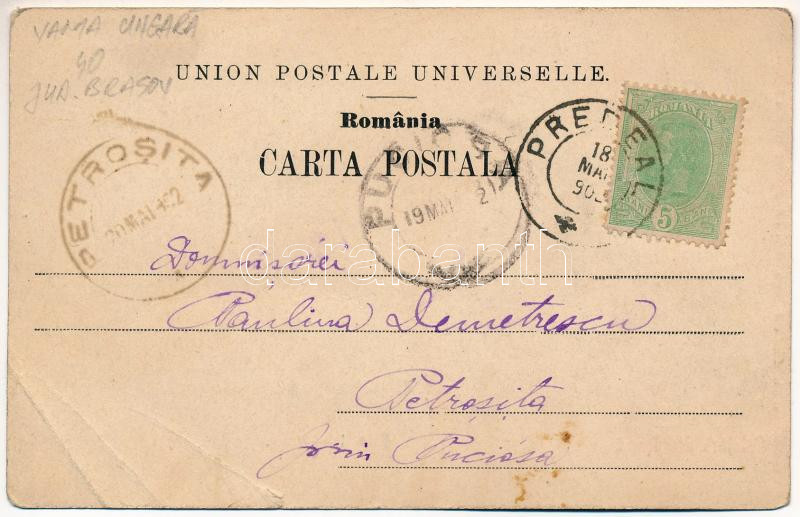 VAMA UNGARA
40
JUD. BRASOV
UNION POSTALE UNIVERSELLE.
România
CARTA POSTALA
PETROȘITA
20 MAI
19 MAI
PREDEAL
18
MAI
ROMANIA
5
darabanth
Domnișoarei
Paulina Demetrescu
Petroșita
prin Pucioasa